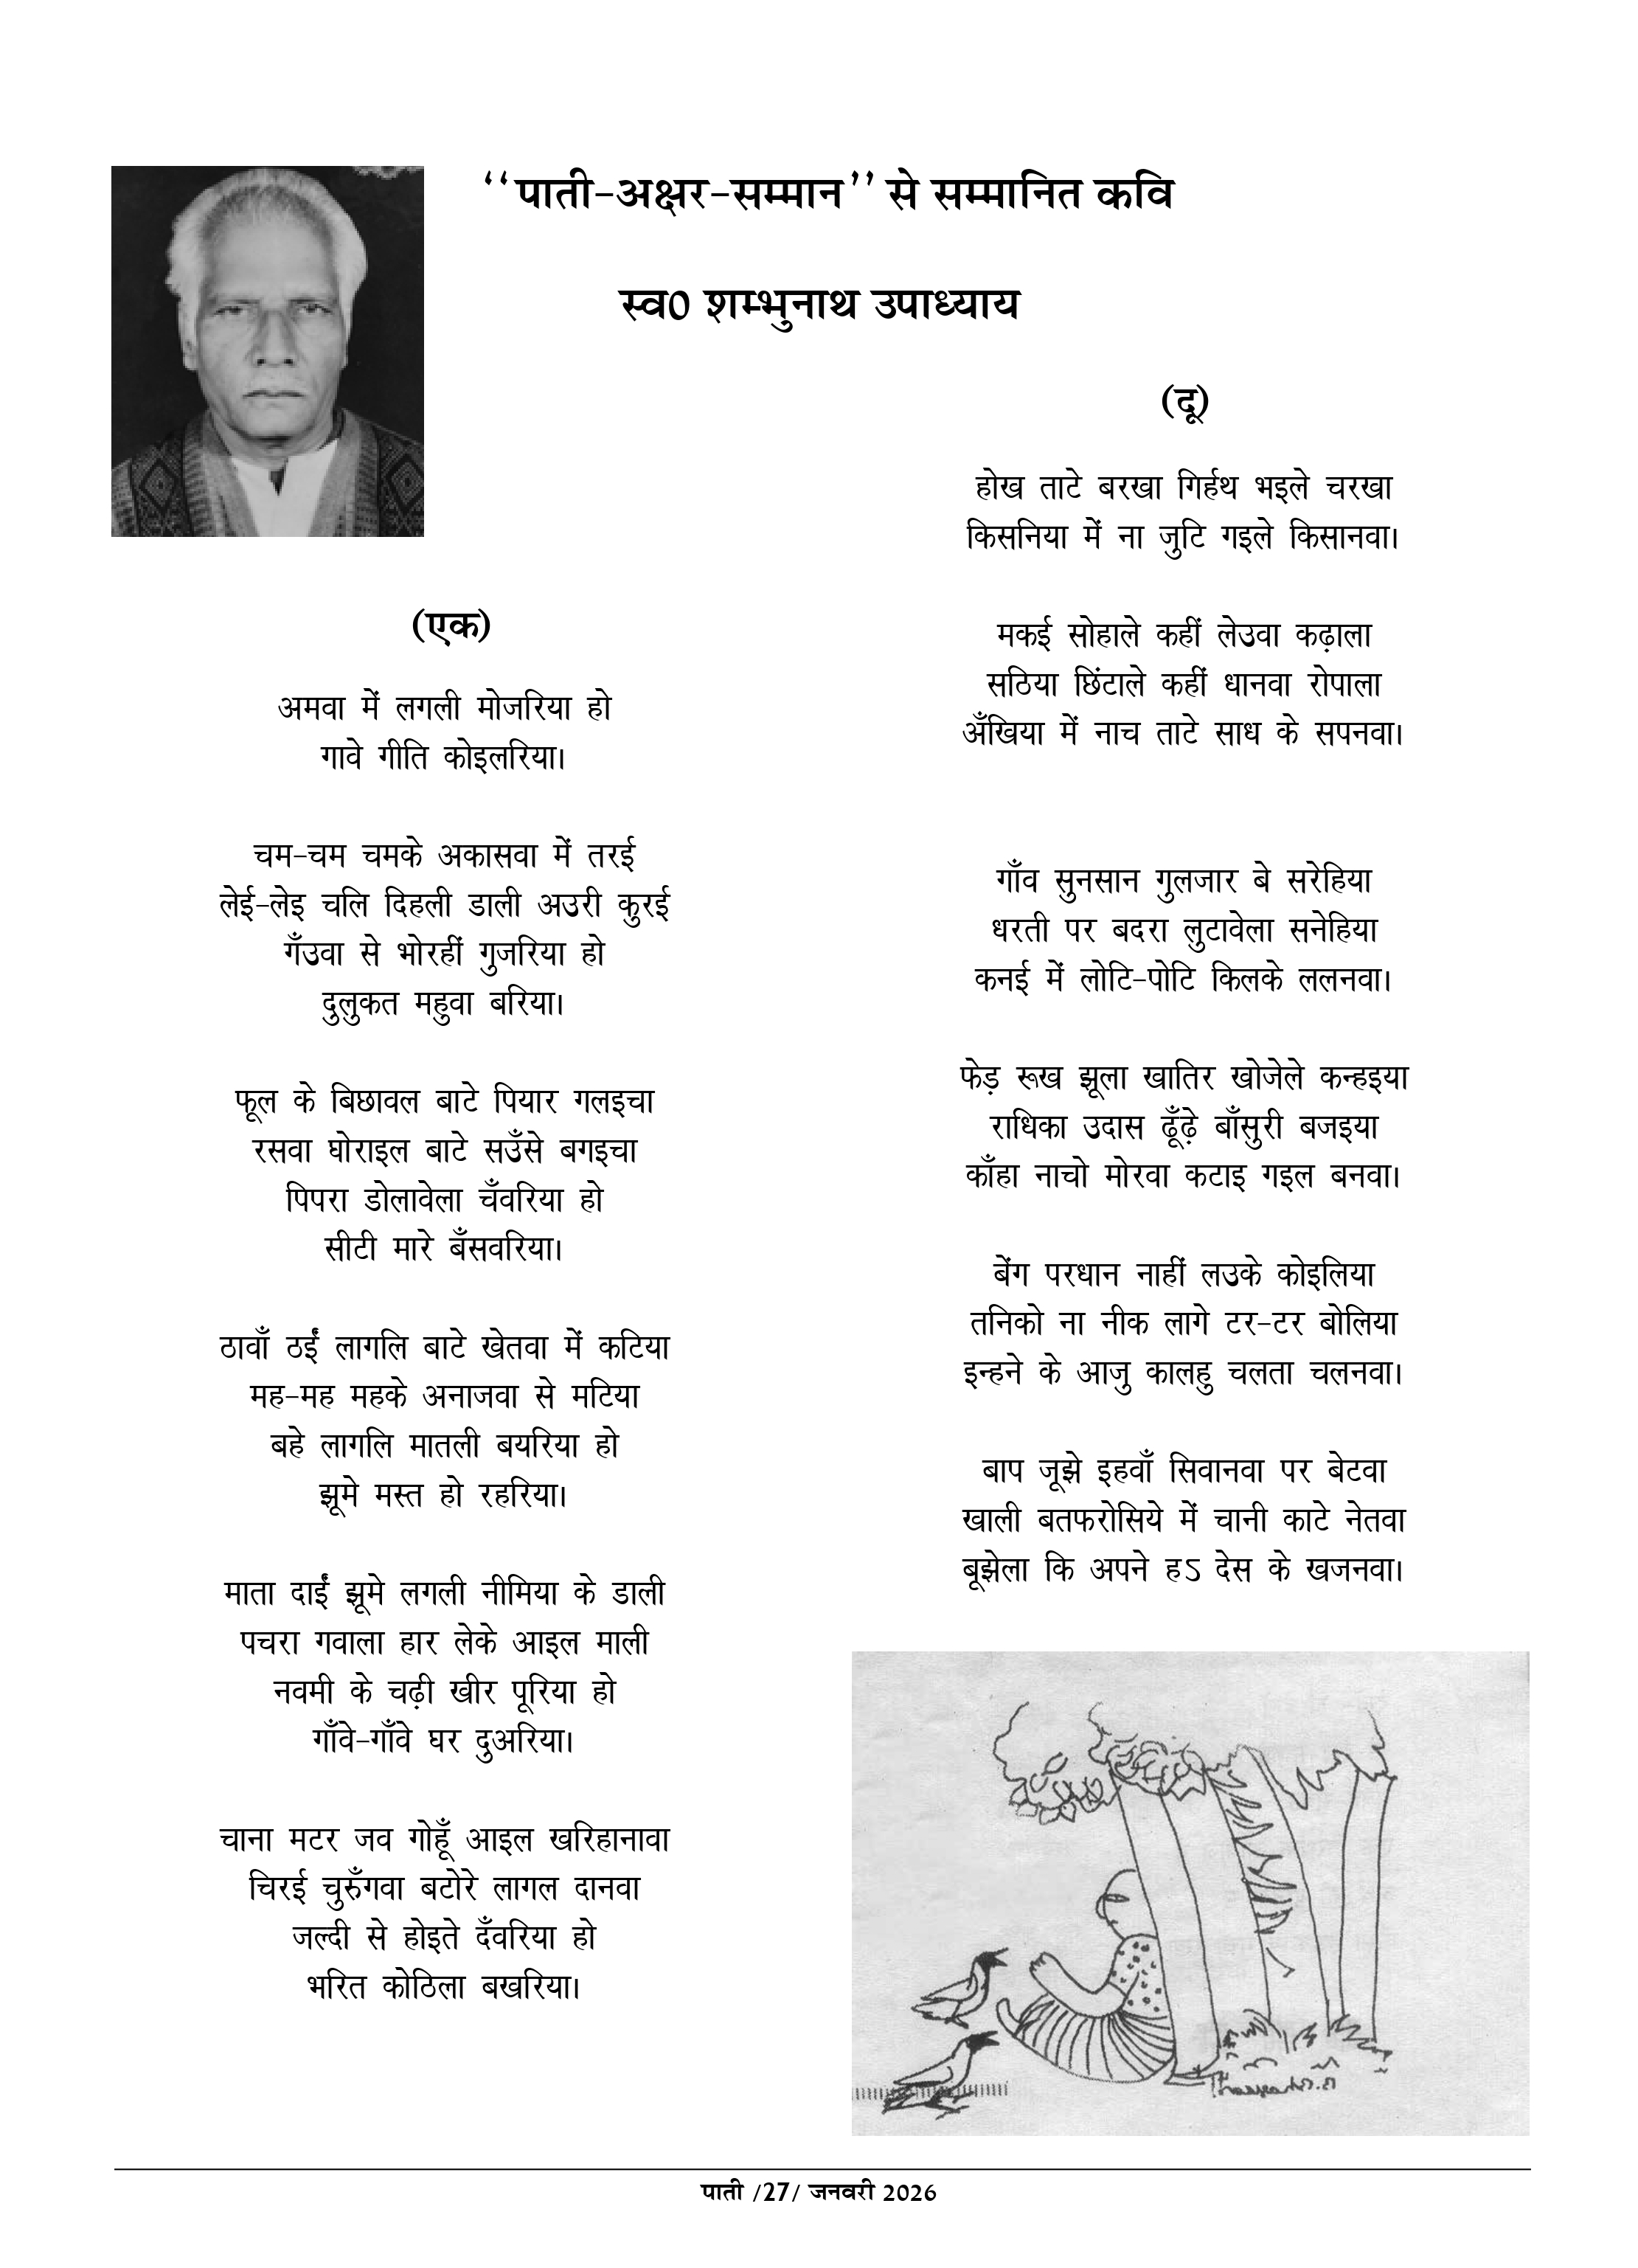 ‘‘पाती-अक्षर-सम्मान’’ से सम्मानित कवि
स्व0 शम्भुनाथ उपाध्याय
(एक)
अमवा में लगली मोजरिया हो
गावे गीति कोइलरिया।
चम-चम चमके अकासवा में तरई
लेई-लेइ चलि दिहली डाली अउरी कुरई
गँउवा से भोरहीं गुजरिया हो
दुलुकत महुवा बरिया।
फूल के बिछावल बाटे पियार गलइचा
रसवा घोराइल बाटे सउँसे बगइचा
पिपरा डोलावेला चँवरिया हो
सीटी मारे बँसवरिया।
ठावाँ ठईं लागलि बाटे खेतवा में कटिया
मह-मह महके अनाजवा से मटिया
बहे लागलि मातली बयरिया हो
झूमे मस्त हो रहरिया।
माता दाईं झूमे लगली नीमिया के डाली
पचरा गवाला हार लेके आइल माली
नवमी के चढ़ी खीर पूरिया हो
गाँवे-गाँवे घर दुअरिया।
चाना मटर जव गोहूँ आइल खरिहानावा
चिरई चुरुँगवा बटोरे लागल दानवा
जल्दी से होइते दँवरिया हो
भरित कोठिला बखरिया।
(दू)
होख ताटे बरखा गिर्हथ भइले चरखा
किसनिया में ना जुटि गइले किसानवा।
मकई सोहाले कहीं लेउवा कढ़ाला
सठिया छिंटाले कहीं धानवा रोपाला
अँखिया में नाच ताटे साध के सपनवा।
गाँव सुनसान गुलजार बे सरेहिया
धरती पर बदरा लुटावेला सनेहिया
कनई में लोटि-पोटि किलके ललनवा।
फेड़ रूख झूला खातिर खोजेले कन्हइया
राधिका उदास ढूँढ़े बाँसुरी बजइया
काँहा नाचो मोरवा कटाइ गइल बनवा।
बेंग परधान नाहीं लउके कोइलिया
तनिको ना नीक लागे टर-टर बोलिया
इन्हने के आजु कालहु चलता चलनवा।
बाप जूझे इहवाँ सिवानवा पर बेटवा
खाली बतफरोसिये में चानी काटे नेतवा
बूझेला कि अपने हऽ देस के खजनवा।
पाती /27/ जनवरी 2026